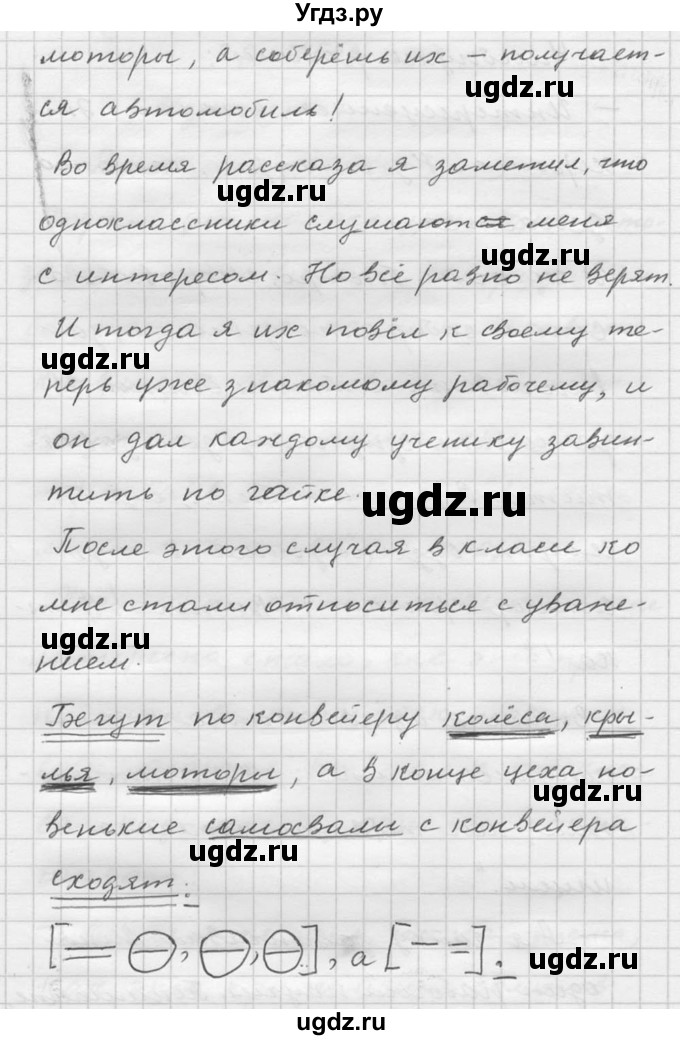 Угдз.ру
моторы, а соберёшь их – получает-
ся автомобиль!
Во время рассказа я заметил, что
ugdz.ru
одноклассники слушают меня
ugdz.ru
с интересом. Но всё равно не верят.
И тогда я их повёл к своему те-
ugdz.ru
перь уже знакомому рабочему, и
он дал каждому ученику завин-
тить по гайке.
ugdz.ru
После этого случая в класси ко
мне стали относиться с уваже-
ugdz.ru
нием.
Бегут по конвейеру колёса, кры-
лья, моторы, а в конце цеха но-
ugdz.ru
венькие самосвалы с конвейера
ugdz.ru
сходят.
[= ⊖, ⊖, ⊖], а [– =].
ugdz.ru
ugdz.ru